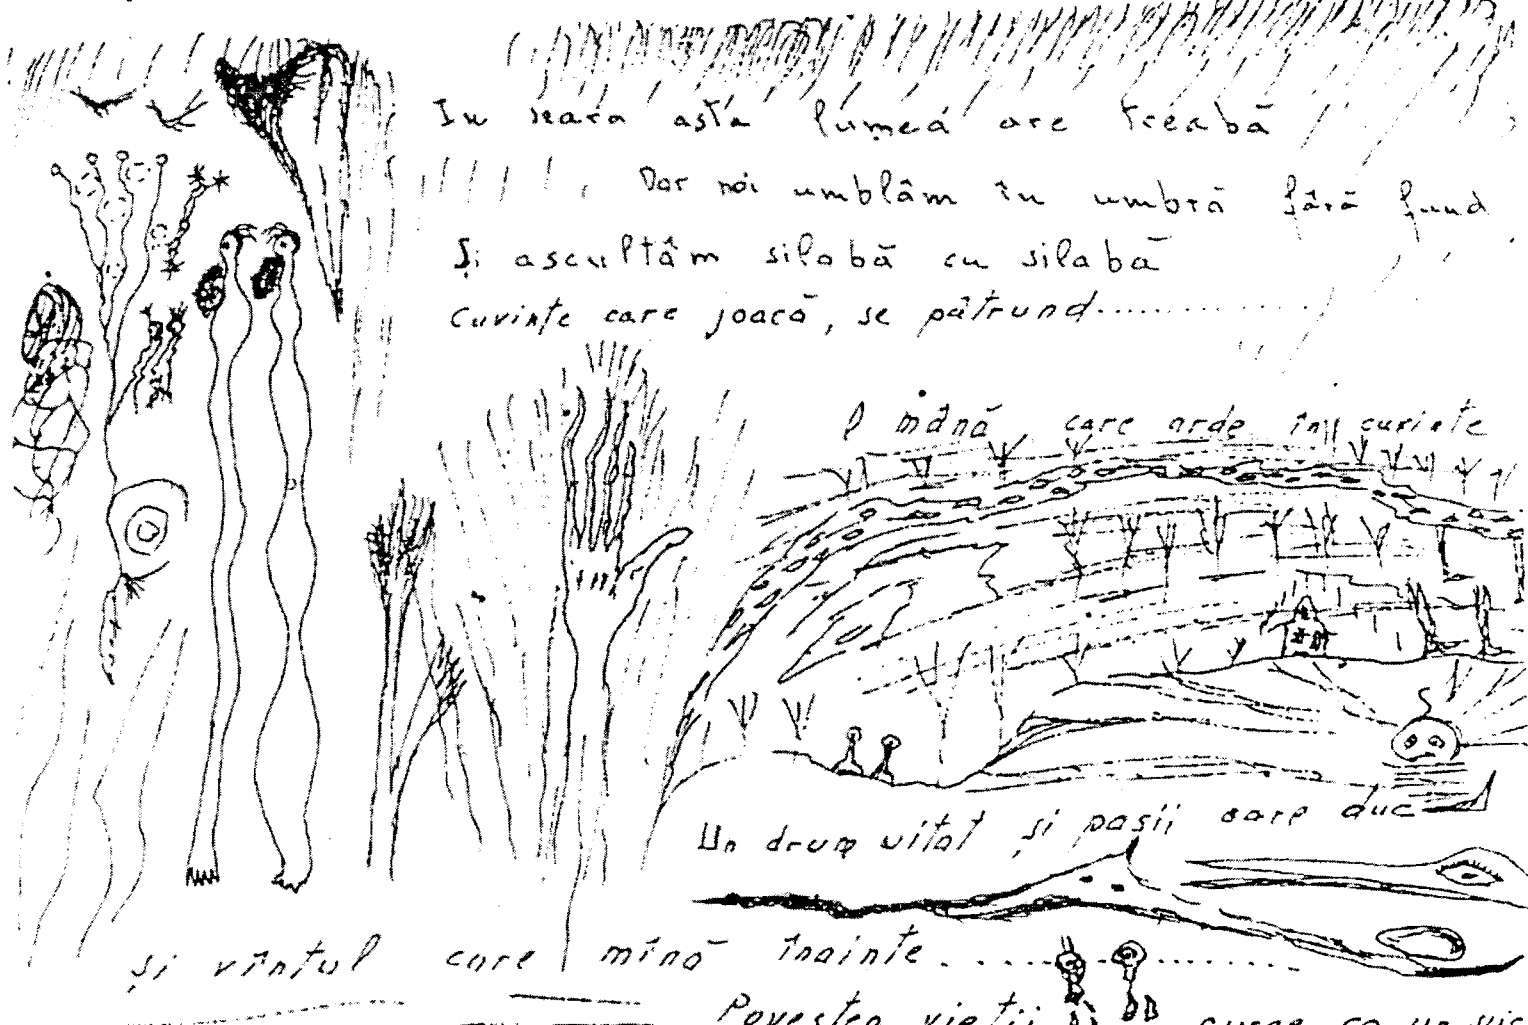 In seara asta lumea are treabă
Dar noi umblâm în umbră fără fund
Și ascultâm silabă cu silabă
cuvinte care joacă, se pătrund..............
O mână care arde în cuvinte
Un drum uitat și pașii care duc
și vîntul care mînă înainte..............
Povestea vieții curge ca un